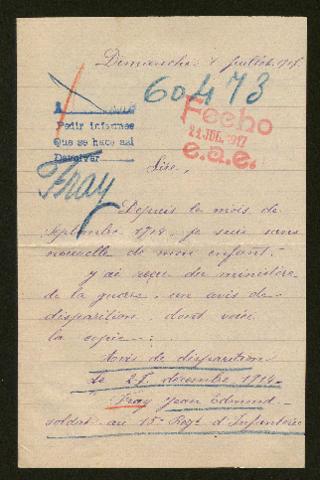 Dimanche 8 juillet 1917.
60473
Fecho
21 JUL. 1917
e.a.e.
Pedir informes
Que se hace asi
Devolver
Fray
Sire,
Depuis le mois de
Septembre 1914, je suis sans
nouvelle de mon enfant.
y ai reçu du ministère
de la guerre, un avis de
disparition dont voici
la copie:
Avis de disparition
le 28 décembre 1914
Fray Jean Edmond
soldat au 15e Regt d'Infanterie